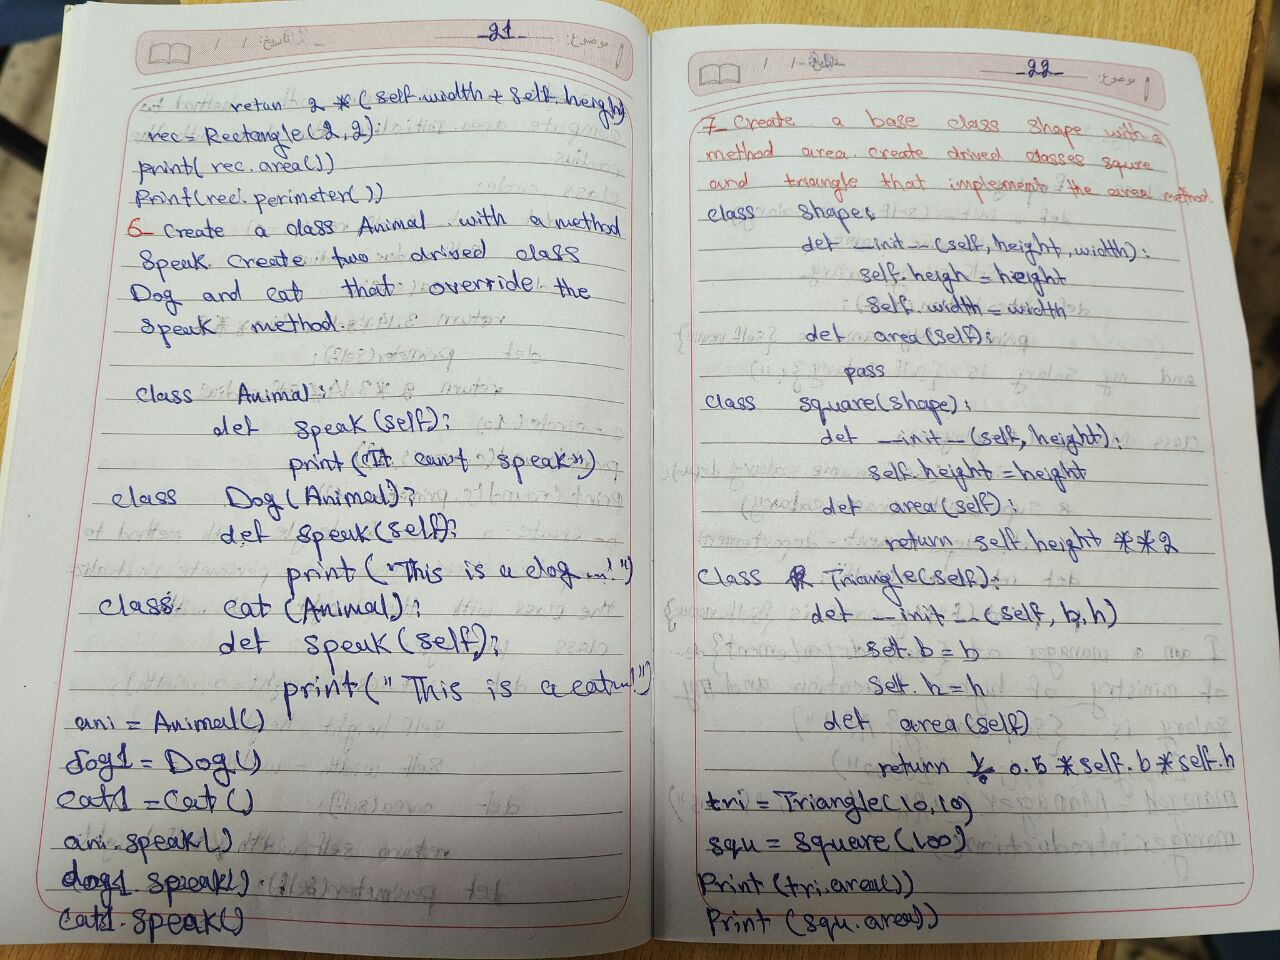 -21-
موضوع:
تاریخ: / /
retun 2 * (self.width + self.height)
rec = Rectangle(2,2)
print( rec.area())
Print(rec.perimeter())
6- Create a class Animal with a method
Speak. Create two drived class
Dog and cat that override the
speak method.
class Animal:
def speak(self):
print("It can't speak")
class Dog(Animal):
def speak(self):
print("This is a dog ...!")
class cat (Animal):
def speak(self):
print("This is a cat...!")
ani = Animal()
dog1 = Dog()
cat1 = Cat()
ani.speak()
dog1.speak()
cat1.speak()
-22-
موضوع:
7- Create a base class shape with a
method area. create drived classes squre
and triangle that implement the area method.
class shape:
def __init__(self, height, width):
self.heigh = height
self.width = width
def area(self):
pass
class square(shape):
def __init__(self, height):
self.height = height
def area(self):
return self.height **2
class Triangle(self):
def __init__(self, b, h)
self.b = b
self.h = h
def area(self)
return 0.5 * self.b * self.h
tri = Triangle(10,10)
squ = square(100)
Print (tri.area())
Print (squ.area())